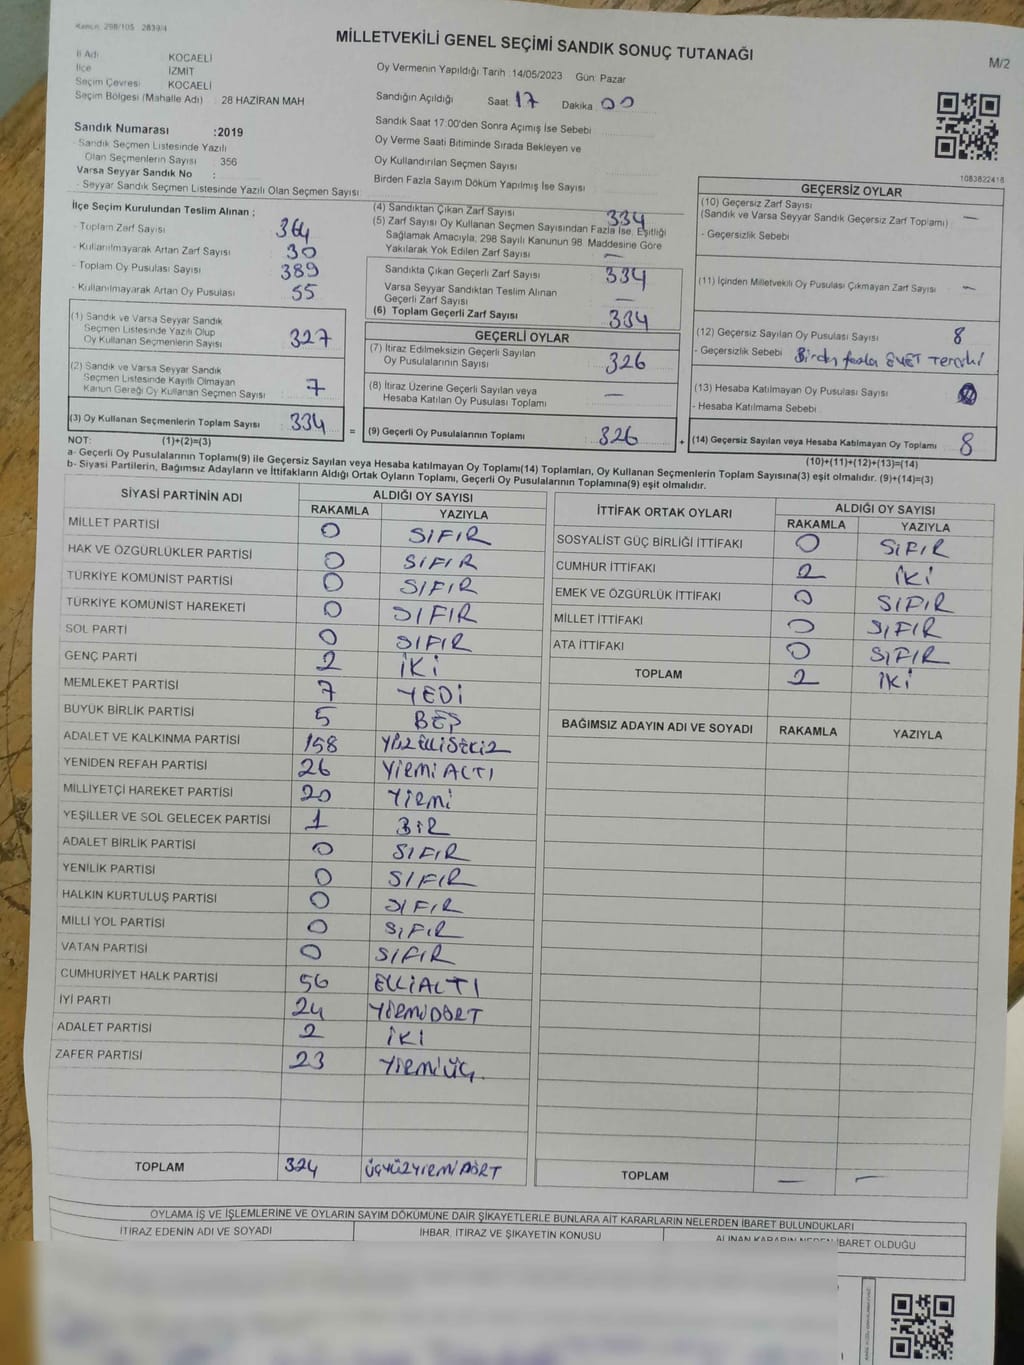 Kanun: 298/105 2839/4
MİLLETVEKİLİ GENEL SEÇİMİ SANDIK SONUÇ TUTANAĞI
M/2
İl Adı KOCAELİ
İlçe İZMİT
Seçim Çevresi KOCAELİ
Seçim Bölgesi (Mahalle Adı) : 28 HAZİRAN MAH
Sandık Numarası :2019
- Sandık Seçmen Listesinde Yazılı
Olan Seçmenlerin Sayısı : 356
Varsa Seyyar Sandık No :
- Seyyar Sandık Seçmen Listesinde Yazılı Olan Seçmen Sayısı
Oy Vermenin Yapıldığı Tarih :14/05/2023 Gün: Pazar
Sandığın Açıldığı Saat 17 Dakika 00
Sandık Saat 17:00'den Sonra Açımış İse Sebebi
Oy Verme Saati Bitiminde Sırada Bekleyen ve
Oy Kullandırılan Seçmen Sayısı
Birden Fazla Sayım Döküm Yapılmış İse Sayısı
1083822416
İlçe Seçim Kurulundan Teslim Alınan :
- Toplam Zarf Sayısı 364
- Kullanılmayarak Artan Zarf Sayısı 30
- Toplam Oy Pusulası Sayısı 389
- Kullanılmayarak Artan Oy Pusulası 55
(1) Sandık ve Varsa Seyyar Sandık
Seçmen Listesinde Yazılı Olup
Oy Kullanan Seçmenlerin Sayısı 327
(2) Sandık ve Varsa Seyyar Sandık
Seçmen Listesinde Kayıtlı Olmayan
Kanun Gereği Oy Kullanan Seçmen Sayısı 7
(3) Oy Kullanan Seçmenlerin Toplam Sayısı 334 =
(4) Sandıktan Çıkan Zarf Sayısı 334
(5) Zarf Sayısı Oy Kullanan Seçmen Sayısından Fazla İse, Eşitliği
Sağlamak Amacıyla, 298 Sayılı Kanunun 98. Maddesine Göre
Yakılarak Yok Edilen Zarf Sayısı —
Sandıkta Çıkan Geçerli Zarf Sayısı 334
Varsa Seyyar Sandıktan Teslim Alınan
Geçerli Zarf Sayısı —
(6) Toplam Geçerli Zarf Sayısı 334
GEÇERLİ OYLAR
(7) İtiraz Edilmeksizin Geçerli Sayılan
Oy Pusulalarının Sayısı 326
(8) İtiraz Üzerine Geçerli Sayılan veya
Hesaba Katılan Oy Pusulası Toplamı —
(9) Geçerli Oy Pusulalarının Toplamı 326 +
GEÇERSİZ OYLAR
(10) Geçersiz Zarf Sayısı
(Sandık ve Varsa Seyyar Sandık Geçersiz Zarf Toplamı) —
- Geçersizlik Sebebi
(11) İçinden Milletvekili Oy Pusulası Çıkmayan Zarf Sayısı —
(12) Geçersiz Sayılan Oy Pusulası Sayısı 8
- Geçersizlik Sebebi Birden fazla EVET Tercihi
(13) Hesaba Katılmayan Oy Pusulası Sayısı
- Hesaba Katılmama Sebebi
(14) Geçersiz Sayılan veya Hesaba Katılmayan Oy Toplamı 8
NOT: (1)+(2)=(3) (10)+(11)+(12)+(13)=(14)
a- Geçerli Oy Pusulalarının Toplamı(9) ile Geçersiz Sayılan veya Hesaba katılmayan Oy Toplamı(14) Toplamları, Oy Kullanan Seçmenlerin Toplam Sayısına(3) eşit olmalıdır. (9)+(14)=(3)
b- Siyasi Partilerin, Bağımsız Adayların ve İttifakların Aldığı Ortak Oyların Toplamı, Geçerli Oy Pusulalarının Toplamına(9) eşit olmalıdır.
SİYASİ PARTİNİN ADI ALDIĞI OY SAYISI
RAKAMLA YAZIYLA
MİLLET PARTİSİ 0 SIFIR
HAK VE ÖZGÜRLÜKLER PARTİSİ 0 SIFIR
TÜRKİYE KOMÜNİST PARTİSİ 0 SIFIR
TÜRKİYE KOMÜNİST HAREKETİ 0 SIFIR
SOL PARTİ 0 SIFIR
GENÇ PARTİ 2 İKİ
MEMLEKET PARTİSİ 7 YEDİ
BÜYÜK BİRLİK PARTİSİ 5 BEŞ
ADALET VE KALKINMA PARTİSİ 158 YÜZELLİSEKİZ
YENİDEN REFAH PARTİSİ 26 YİRMİALTI
MİLLİYETÇİ HAREKET PARTİSİ 20 YİRMİ
YEŞİLLER VE SOL GELECEK PARTİSİ 1 BİR
ADALET BİRLİK PARTİSİ 0 SIFIR
YENİLİK PARTİSİ 0 SIFIR
HALKIN KURTULUŞ PARTİSİ 0 SIFIR
MİLLİ YOL PARTİSİ 0 SIFIR
VATAN PARTİSİ 0 SIFIR
CUMHURİYET HALK PARTİSİ 56 ELLİALTI
İYİ PARTİ 24 YİRMİDÖRT
ADALET PARTİSİ 2 İKİ
ZAFER PARTİSİ 23 YİRMİÜÇ
TOPLAM 324 ÜÇYÜZYİRMİDÖRT
İTTİFAK ORTAK OYLARI ALDIĞI OY SAYISI
RAKAMLA YAZIYLA
SOSYALİST GÜÇ BİRLİĞİ İTTİFAKI 0 SIFIR
CUMHUR İTTİFAKI 2 İKİ
EMEK VE ÖZGÜRLÜK İTTİFAKI 0 SIFIR
MİLLET İTTİFAKI 0 SIFIR
ATA İTTİFAKI 0 SIFIR
TOPLAM 2 İKİ
BAĞIMSIZ ADAYIN ADI VE SOYADI RAKAMLA YAZIYLA
TOPLAM — —
OYLAMA İŞ VE İŞLEMLERİNE VE OYLARIN SAYIM DÖKÜMÜNE DAİR ŞİKAYETLERLE BUNLARA AİT KARARLARIN NELERDEN İBARET BULUNDUKLARI
İTİRAZ EDENİN ADI VE SOYADI İHBAR, İTİRAZ VE ŞİKAYETİN KONUSU ALINAN KARARIN NEDEN İBARET OLDUĞU